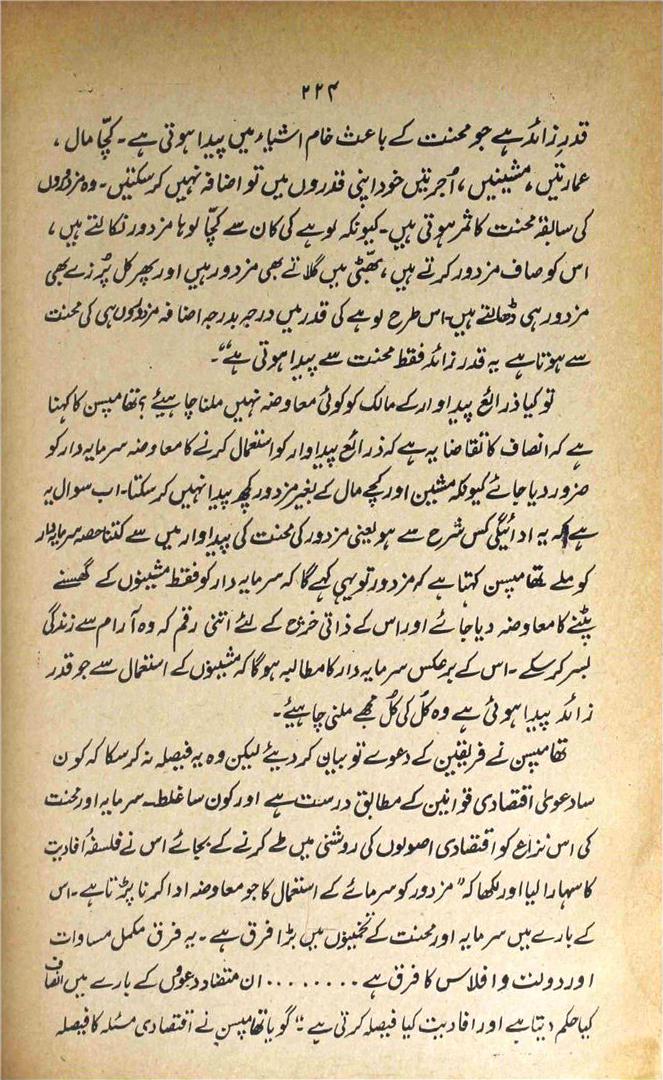 ۲۲۴
قدرِ زائد ہے جو محنت کے باعث خام اشیاء میں پیدا ہوتی ہے۔ کچّا مال ،
عمارتیں ، مشینیں ، اُجرتیں خود اپنی قدروں میں تو اضافہ نہیں کر سکتیں۔ وہ مزدوروں
کی سابقہ محنت کا ثمر ہوتی ہیں۔ کیونکہ لوہے کی کان سے کچّا لوہا مزدور نکالتے ہیں ،
اس کو صاف مزدور کرتے ہیں ، بھٹّی میں گلاتے بھی مزدور ہیں اور پھر کل پُرزے بھی
مزدور ہی ڈھالتے ہیں۔ اس طرح لوہے کی قدر میں درجہ بدرجہ اضافہ مزدوروں ہی کی محنت
سے ہوتا ہے یہ قدر زائد فقط محنت سے پیدا ہوتی ہے“۔
تو کیا ذرائع پیداوار کے مالک کو کوئی معاوضہ نہیں ملنا چاہیئے ؟ تھامپسن کا کہنا
ہے کہ انصاف کا تقاضا یہ ہے کہ ذرائع پیداوار کو استعمال کرنے کا معاوضہ سرمایہ دار کو
ضرور دیا جائے کیونکہ مشین اور کچے مال کے بغیر مزدور کچھ پیدا نہیں کر سکتا۔ اب سوال یہ
ہے کہ یہ ادائیگی کس شرح سے ہو یعنی مزدور کی محنت کی پیداوار میں سے کتنا حصہ سرمایہ دار
کو ملے تھامپسن کہتا ہے کہ مزدور تو یہی کہے گا کہ سرمایہ دار کو فقط مشینوں کے گھسنے
پٹنے کا معاوضہ دیا جائے اور اس کے ذاتی خرچ کے لئے اتنی رقم کہ وہ آرام سے زندگی
بسر کر سکے ۔ اس کے برعکس سرمایہ دار کا مطالبہ ہو گا کہ مشینوں کے استعمال سے جو قدر
زائد پیدا ہوئی ہے وہ کل کی کُل مجھے ملنی چاہیئے۔
تھامپسن نے فریقین کے دعوے تو بیان کر دیئے لیکن وہ یہ فیصلہ نہ کر سکا کہ کون
سا دعویٰ اقتصادی قوانین کے مطابق درست ہے اور کون سا غلط۔ سرمایہ اور محنت
کی اس نزاع کو اقتصادی اصولوں کی روشنی میں طے کرنے کے بجائے اس نے فلسفۂ افادیت
کا سہارا لیا اور لکھا کہ ”مزدور کو سرمائے کے استعمال کا جو معاوضہ ادا کرنا پڑتا ہے۔ اس
کے بارے میں سرمایہ اور محنت کے تخمینوں میں بڑا فرق ہے ۔ یہ فرق مکمل مساوات
اور دولت و افلاس کا فرق ہے ........ ان متضاد دعوؤں کے بارے میں انصاف
کیا حکم دیتا ہے اور افادیت کیا فیصلہ کرتی ہے“۔ گویا تھامپسن نے اقتصادی مسئلہ کا فیصلہ